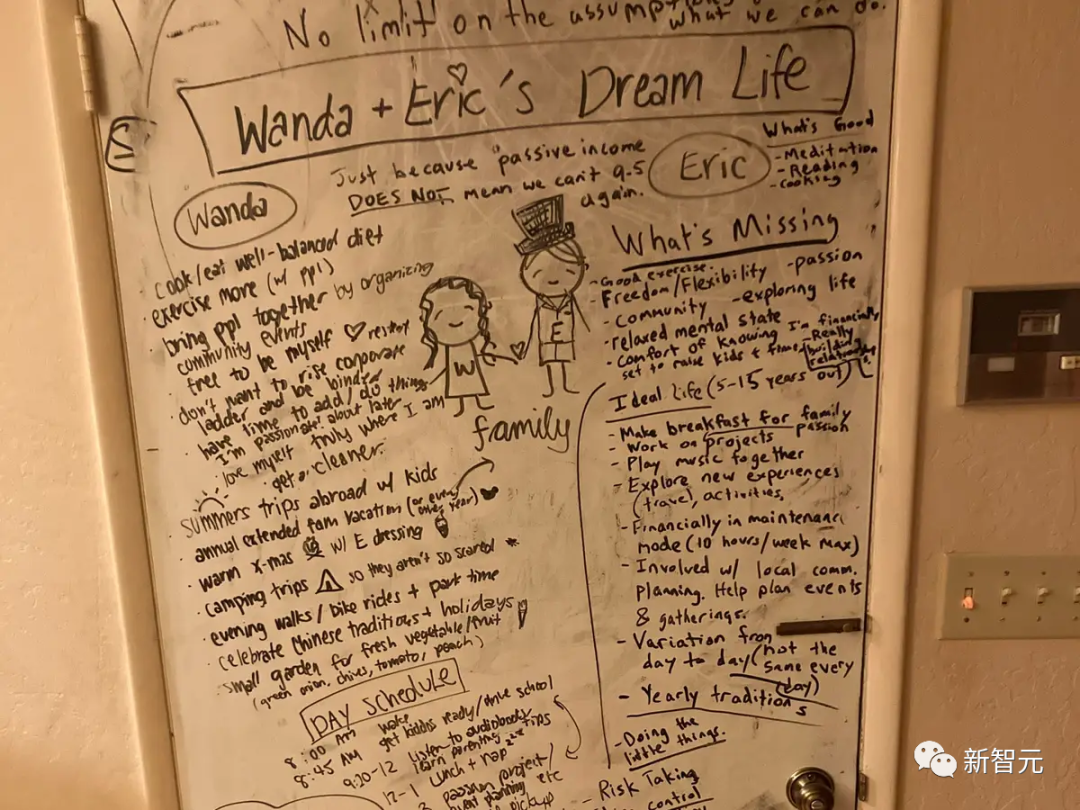 No limit on the assumptions
what we can do.
Wanda + Eric's Dream Life
Just because "passive income
DOES NOT mean we can't 9-5
again.
Wanda
cook/eat well-balanced diet
· exercise more (w/ ppl)
· bring ppl together by organizing
community events
· free to be myself
· don't want to rise corporate
ladder and be
have time to add/do things
I'm passionate about later
· love myself truly where I am
· get a cleaner.
summers trips abroad w/ kids
· annual extended fam vacation (or every
other year)
· warm x-mas w/ E dressing
· camping trips so they aren't so scared
· evening walks/bike rides + part time
· celebrate Chinese traditions + holidays
· small garden for fresh vegetable/fruit
(green onion, chives, tomato, peach)
DAY SCHEDULE
8:00 AM wake
8:45 AM get kiddos ready/drive school
9:20-12 listen to audiobook/
learn parenting tips
12-1 lunch + nap zzz
passion project/
event planning
etc
pickup
W
E
family
Eric
What's Good
- Meditation
- Reading
- Cooking
What's Missing
- Good exercise.
- Freedom/Flexibility - passion
- Community - exploring life
- relaxed mental state
- Comfort of knowing I'm financially
set to raise kids + time
- Really
building
relationships
Ideal life (5-15 years out)
- Make breakfast for family
- Work on projects passion
- Play music together
- Explore new experiences
(travel, activities,
- Financially in maintenance
mode (10 hours/week max)
- Involved w/ local comm.
planning. Help plan events
& gatherings.
- Variation from
day to day (not the
same every
day)
- Yearly traditions
- Doing the
little things.
- Risk Taking
control
新智元